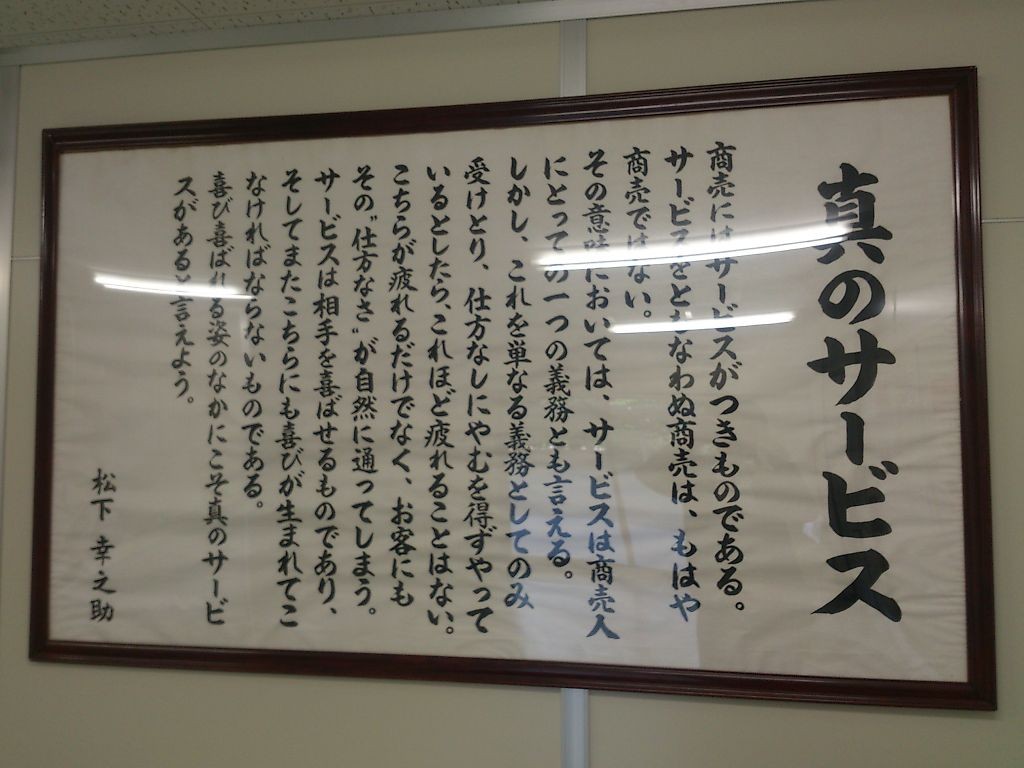 真のサービス
商売にはサービスがつきものである。
サービスをともなわぬ商売は、もはや
商売ではない。
その意味においては、サービスは商売人
にとっての一つの義務とも言える。
しかし、これを単なる義務としてのみ
受けとり、仕方なしにやむを得ずやって
いるとしたら、これほど疲れることはない。
こちらが疲れるだけでなく、お客にも
その〝仕方なさ〟が自然に通ってしまう。
サービスは相手を喜ばせるものであり、
そしてまたこちらにも喜びが生まれてこ
なければならないものである。
喜び喜ばれる姿のなかにこそ真のサービ
スがあると言えよう。
松下 幸之助